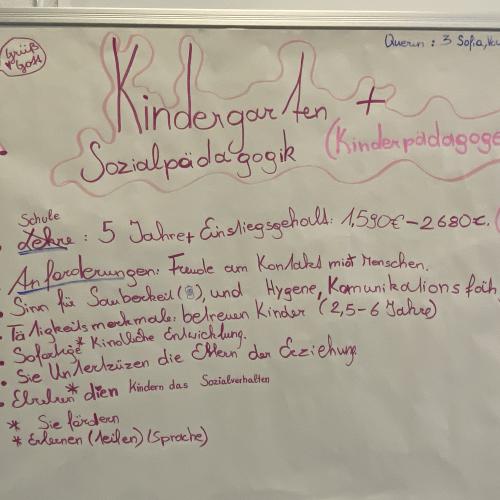 Grüß
Gott
Querun : 3 Sofia,
Kindergarten +
Sozialpädagogik (Kinderpädagoge
Schule
Lehre : 5 Jahre + Einstiegsgehalt: 1,590€ - 2680€. (
Anforderungen: Freude am Kontakt mit Menschen.
Sinn für Sauberkeit ( ), und Hygene, Komunikations fäh
Tätigkeitsmerkmale: betreuen Kinder (2,5-6 Jahre)
* Kindliche Entwicklung.
Sie Untertüzen die Eltern der Erziehung
* dien Kindern das Sozialverhalten
* Sie fördern
* Erlernen (teilen) (Sprache)